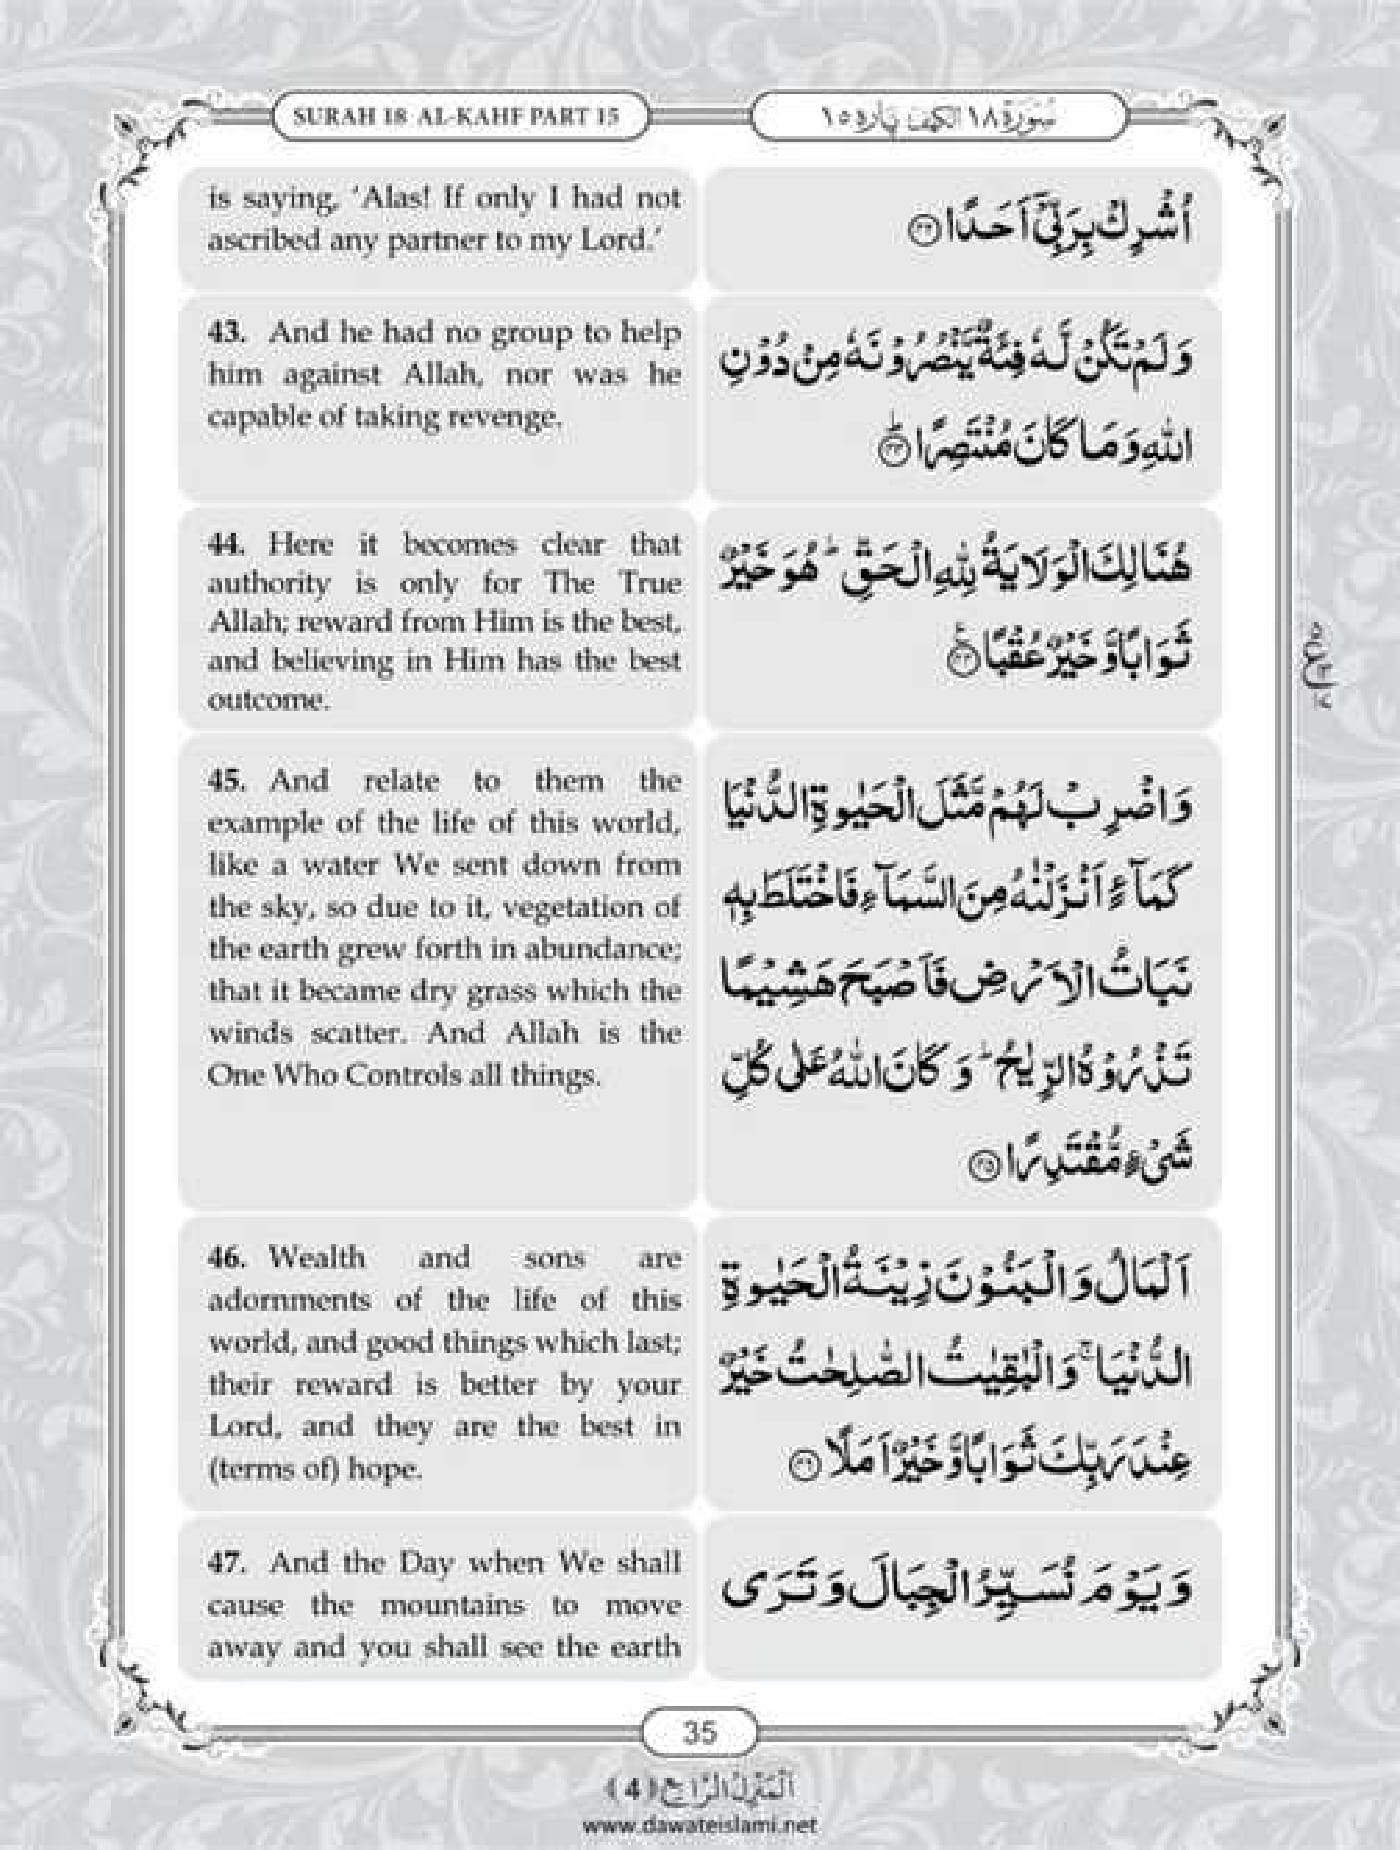 SURAH 18 AL-KAHF PART 15
سُوْرَة ١٨ الكهف پاره ١٥
is saying, ‘Alas! If only I had not
ascribed any partner to my Lord.’
اُشْرِكْ بِرَبِّیْۤ اَحَدًا ﴿۴۲﴾
43. And he had no group to help
him against Allah, nor was he
capable of taking revenge.
وَ لَمْ تَكُنْ لَّهٗ فِئَةٌ یَّنْصُرُوْنَهٗ مِنْ دُوْنِ
اللّٰهِ وَ مَا كَانَ مُنْتَصِرًا ﴿ؕ۴۳﴾
44. Here it becomes clear that
authority is only for The True
Allah; reward from Him is the best,
and believing in Him has the best
outcome.
هُنَالِكَ الْوَلَایَةُ لِلّٰهِ الْحَقِّ ؕ هُوَ خَیْرٌ
ثَوَابًا وَّ خَیْرٌ عُقْبًا ﴿۴۴﴾
45. And relate to them the
example of the life of this world,
like a water We sent down from
the sky, so due to it, vegetation of
the earth grew forth in abundance;
that it became dry grass which the
winds scatter. And Allah is the
One Who Controls all things.
وَ اضْرِبْ لَهُمْ مَّثَلَ الْحَیٰوةِ الدُّنْیَا
كَمَآءٍ اَنْزَلْنٰهُ مِنَ السَّمَآءِ فَاخْتَلَطَ بِهٖ
نَبَاتُ الْاَرْضِ فَاَصْبَحَ هَشِیْمًا
تَذْرُوْهُ الرِّیٰحُ ؕ وَ كَانَ اللّٰهُ عَلٰى كُلِّ
شَیْءٍ مُّقْتَدِرًا ﴿۴۵﴾
46. Wealth and sons are
adornments of the life of this
world, and good things which last;
their reward is better by your
Lord, and they are the best in
(terms of) hope.
اَلْمَالُ وَ الْبَنُوْنَ زِیْنَةُ الْحَیٰوةِ
الدُّنْیَا ۚ وَ الْبٰقِیٰتُ الصّٰلِحٰتُ خَیْرٌ
عِنْدَ رَبِّكَ ثَوَابًا وَّ خَیْرٌ اَمَلًا ﴿۴۶﴾
47. And the Day when We shall
cause the mountains to move
away and you shall see the earth
وَ یَوْمَ نُسَیِّرُ الْجِبَالَ وَ تَرَى
35
اَلْمَنْزِلُ الرَّابِع (4)
www.dawateislami.net